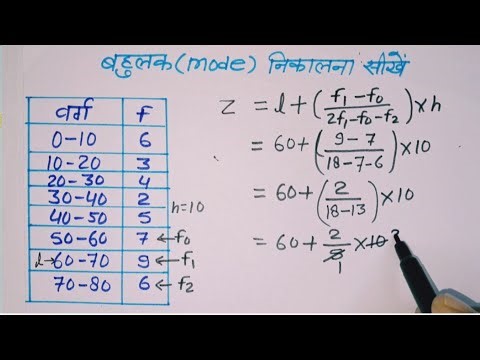 बहुलक (mode) निकालना सीखें
वर्ग f
0-10 6
10-20 3
20-30 4
30-40 2
40-50 5
h=10
50-60 7 ←f₀
l→60-70 9 ←f₁
70-80 6 ←f₂
Z = l + (f₁-f₀ / 2f₁-f₀-f₂) × h
= 60 + (9-7 / 18-7-6) × 10
= 60 + (2 / 18-13) × 10
= 60 + 2/5 × 10 2
1